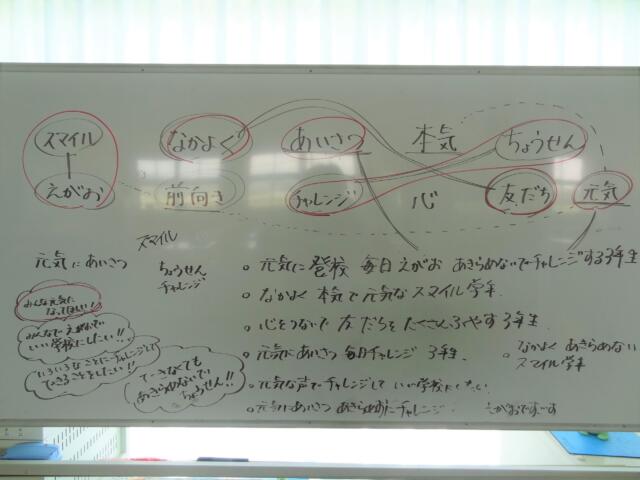 スマイル なかよく あいさつ 本気 ちょうせん
えがお 前向き チャレンジ 心 友だち 元気
元気にあいさつ
スマイル
ちょうせん
チャレンジ
みんな元気に
なってほしい!
みんなでえがおで
いい学校にしたい!!
いろいろなことにチャレンジして
できることをしたい!!
できなくても
あきらめないで
ちょうせん!!
。元気に登校 毎日えがお あきらめないでチャレンジする3年生
。なかよく 本気で元気な スマイル学年
。心をつないで 友だちを たくさんふやす3年生
。元気にあいさつ 毎日チャレンジ 3年生
。なかよく あきらめない
スマイル学年
。元気な声でチャレンジして いい学校にしたい
。元気にあいさつ あきらめずにチャレンジ